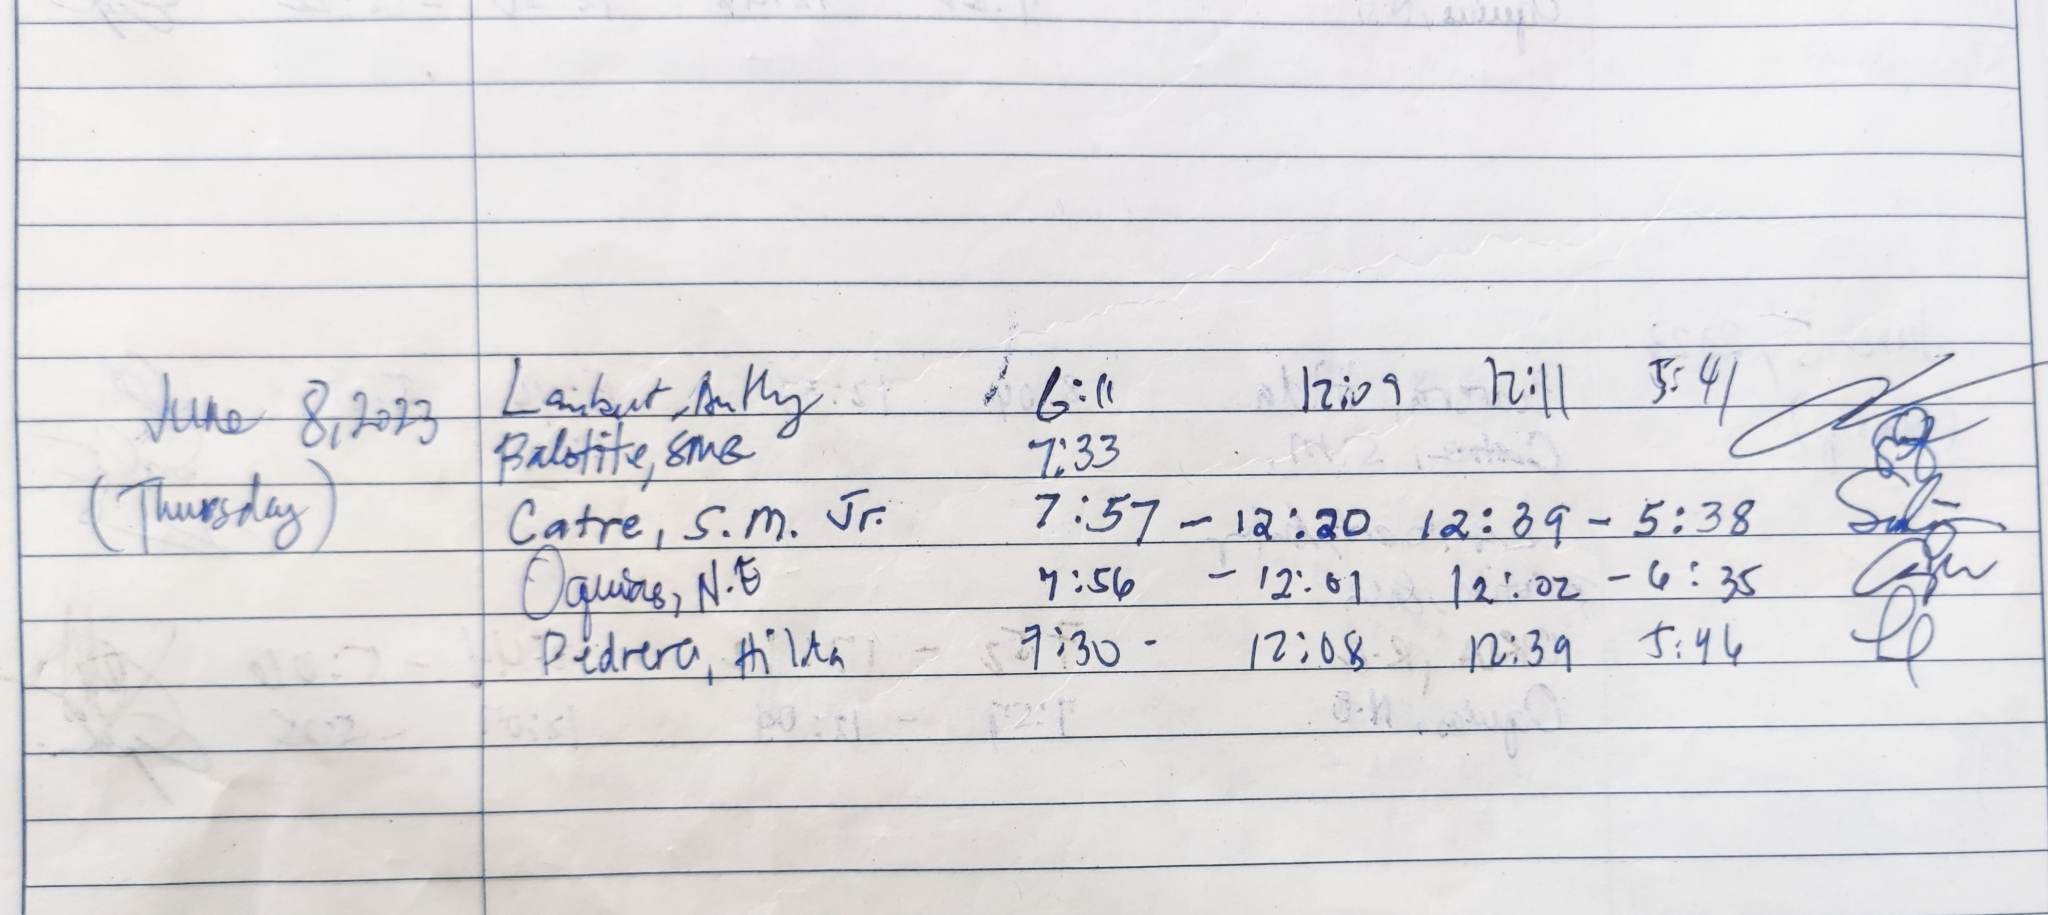 June 8, 2023 Lambut, Anthy 6:11 12:09 12:11 5:41
Balotite, SMB 7:33
(Thursday) Catre, S.M. Jr. 7:57 - 12:20 12:39 - 5:38
Oquias, N.E 7:56 - 12:01 12:02 - 6:35
Pedrera, Hilda 7:30 - 12:08 12:39 5:46